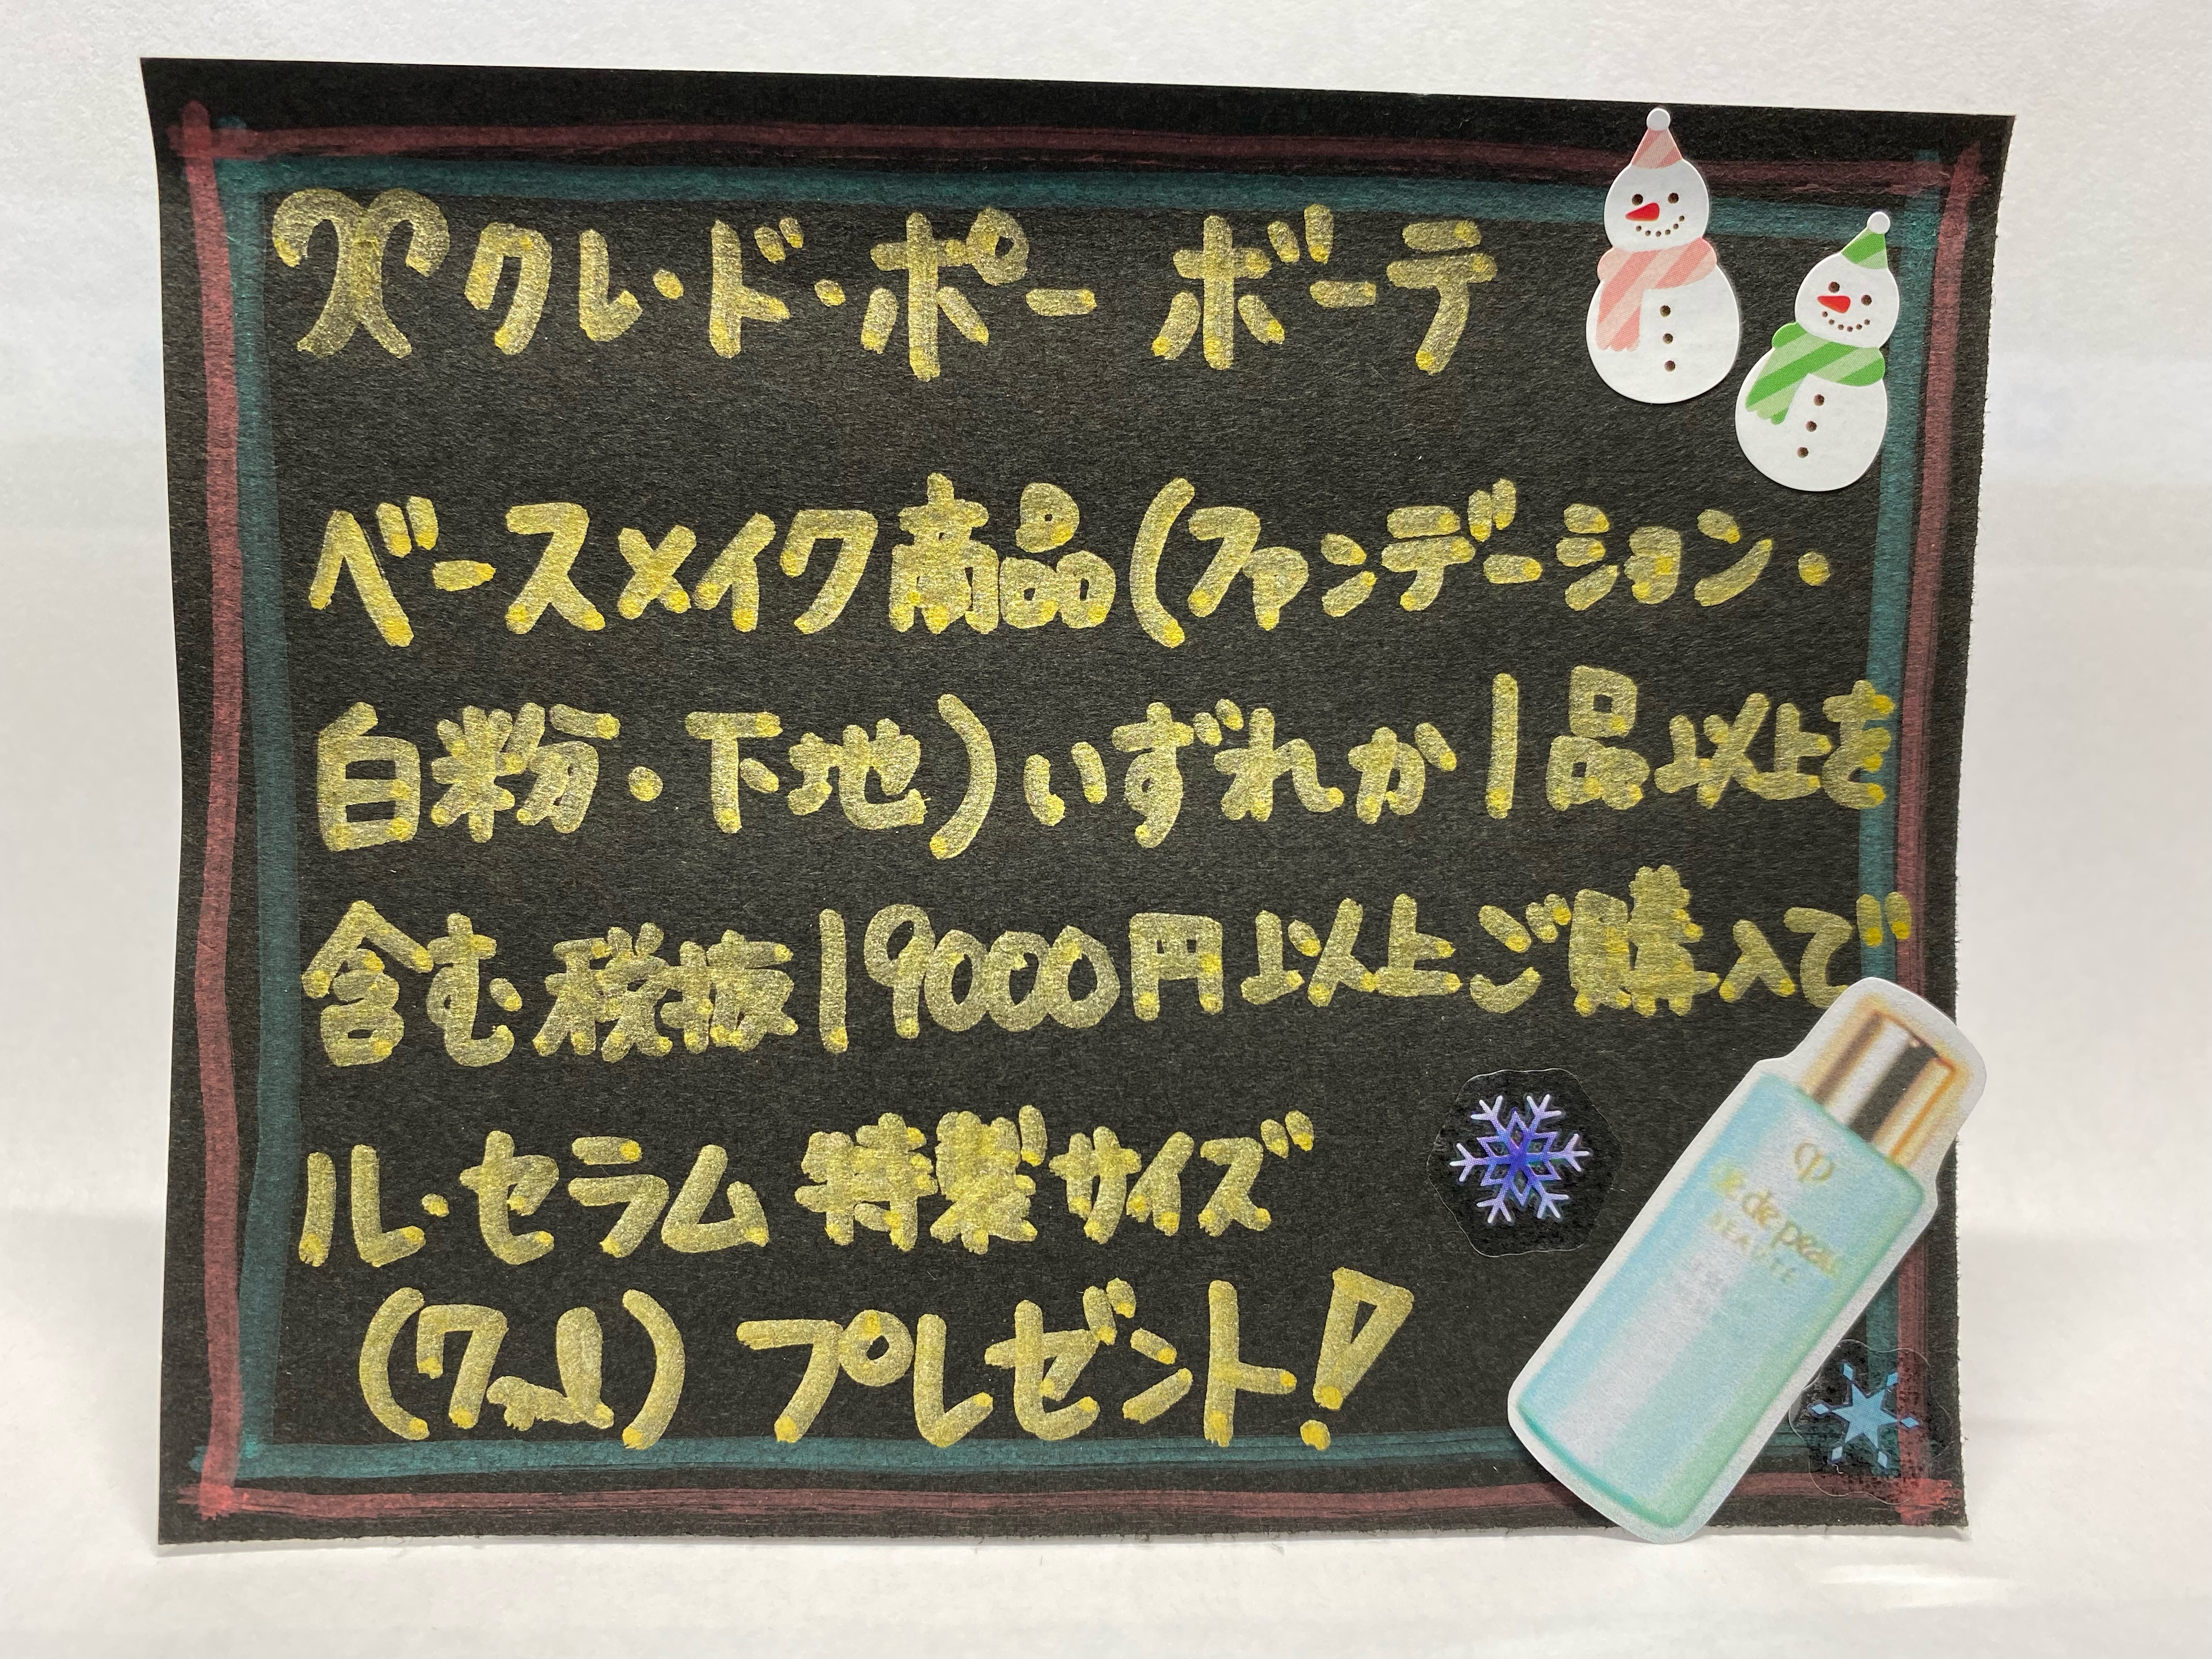 クレ・ド・ポー ボーテ
ベースメイク商品(ファンデーション・
白粉・下地)いずれか1品以上を
含む税抜19000円以上ご購入で
ル・セラム 特製サイズ
(7ml)プレゼント!
clé de peau
BEAUTÉ